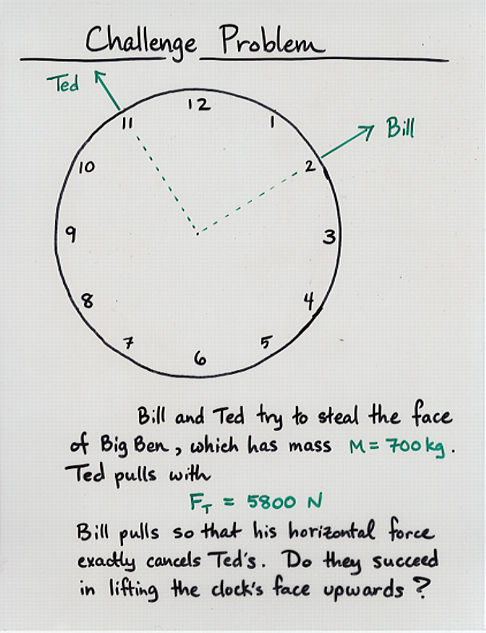 Challenge Problem
Ted
Bill
12
11
1
10
2
9
3
8
4
7
5
6
Bill and Ted try to steal the face
of Big Ben, which has mass M = 700 kg.
Ted pulls with
F_T = 5800 N
Bill pulls so that his horizontal force
exactly cancels Ted's. Do they succeed
in lifting the clock's face upwards?